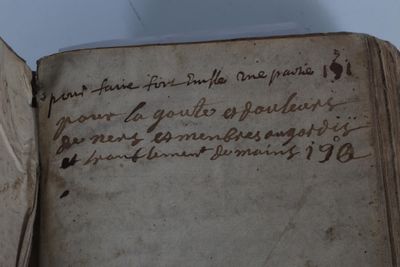 pour faire fort enfle une partie 191
pour la goute et douleurs
de ners et menbres engordis
et tranblement de mains 196